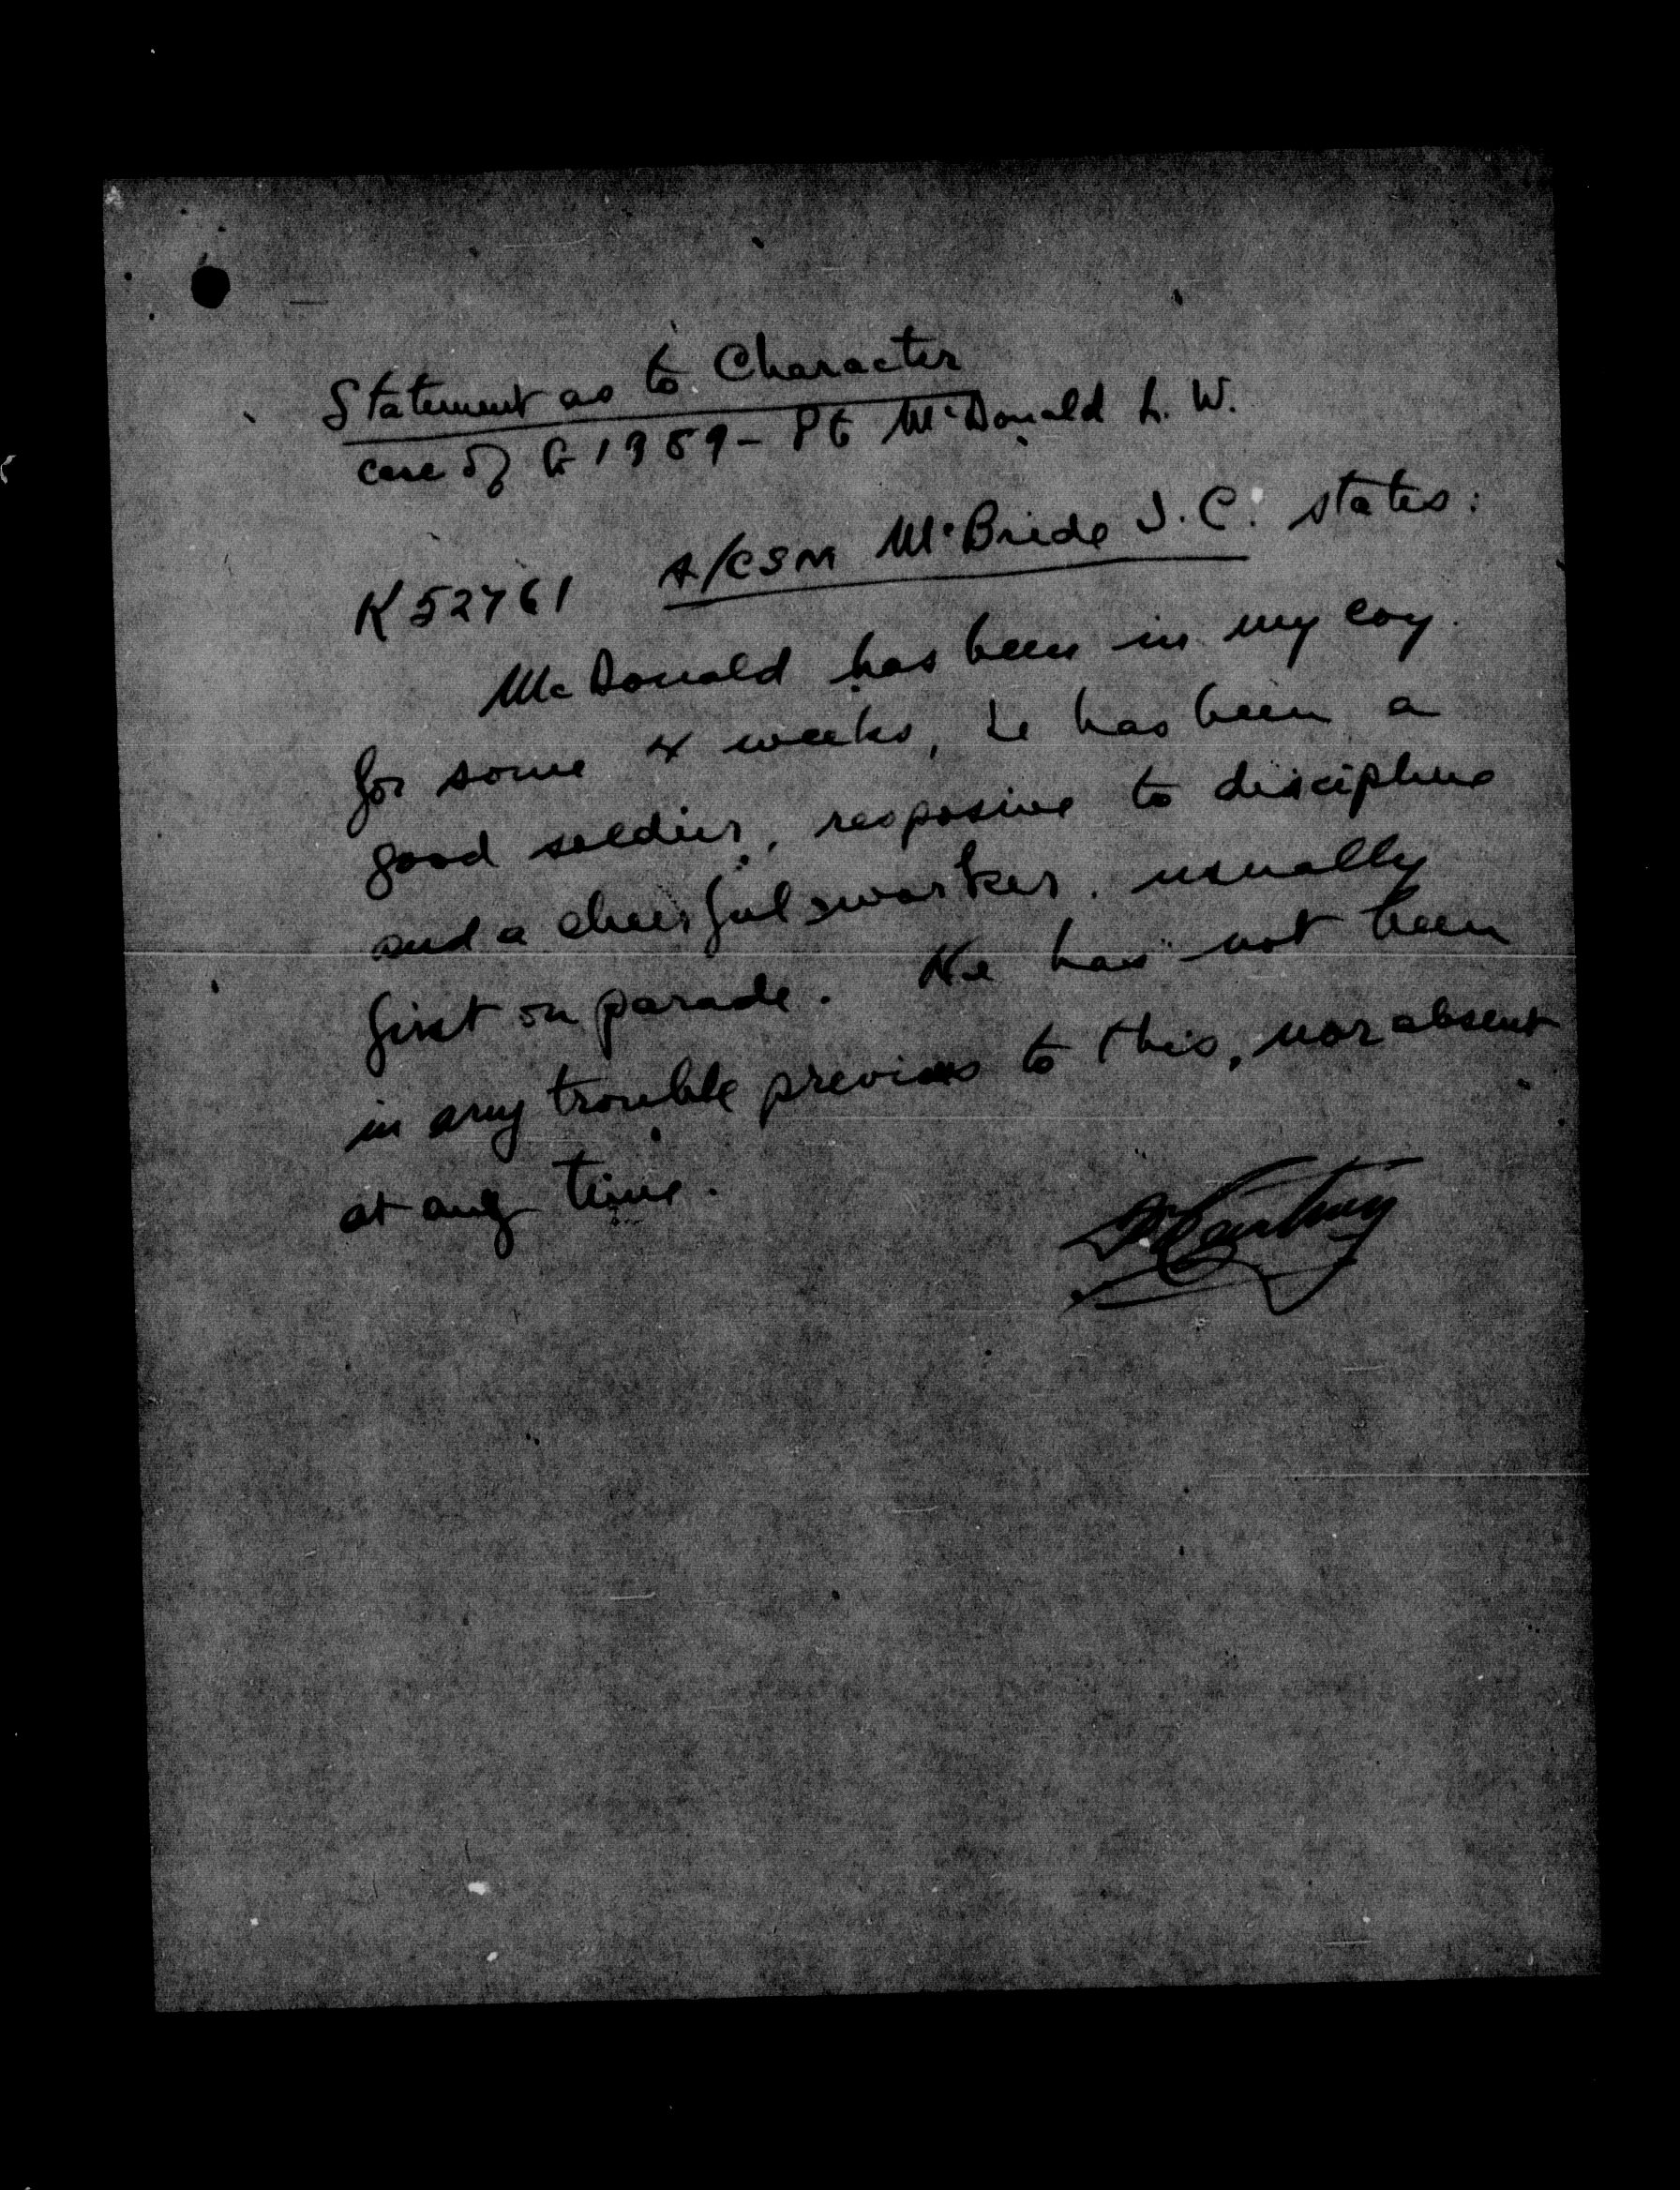 Statement as to Character
case of G 1989 - Pt McDonald L. W.
K 52761 A/CSM McBride J.C. states:
McDonald has been in my coy.
for some 4 weeks, he has been a
good soldier, resposive to discipline
and a cheerful worker. usually
first on parade. He has not been
in any trouble previous to this, nor absent
at any time.